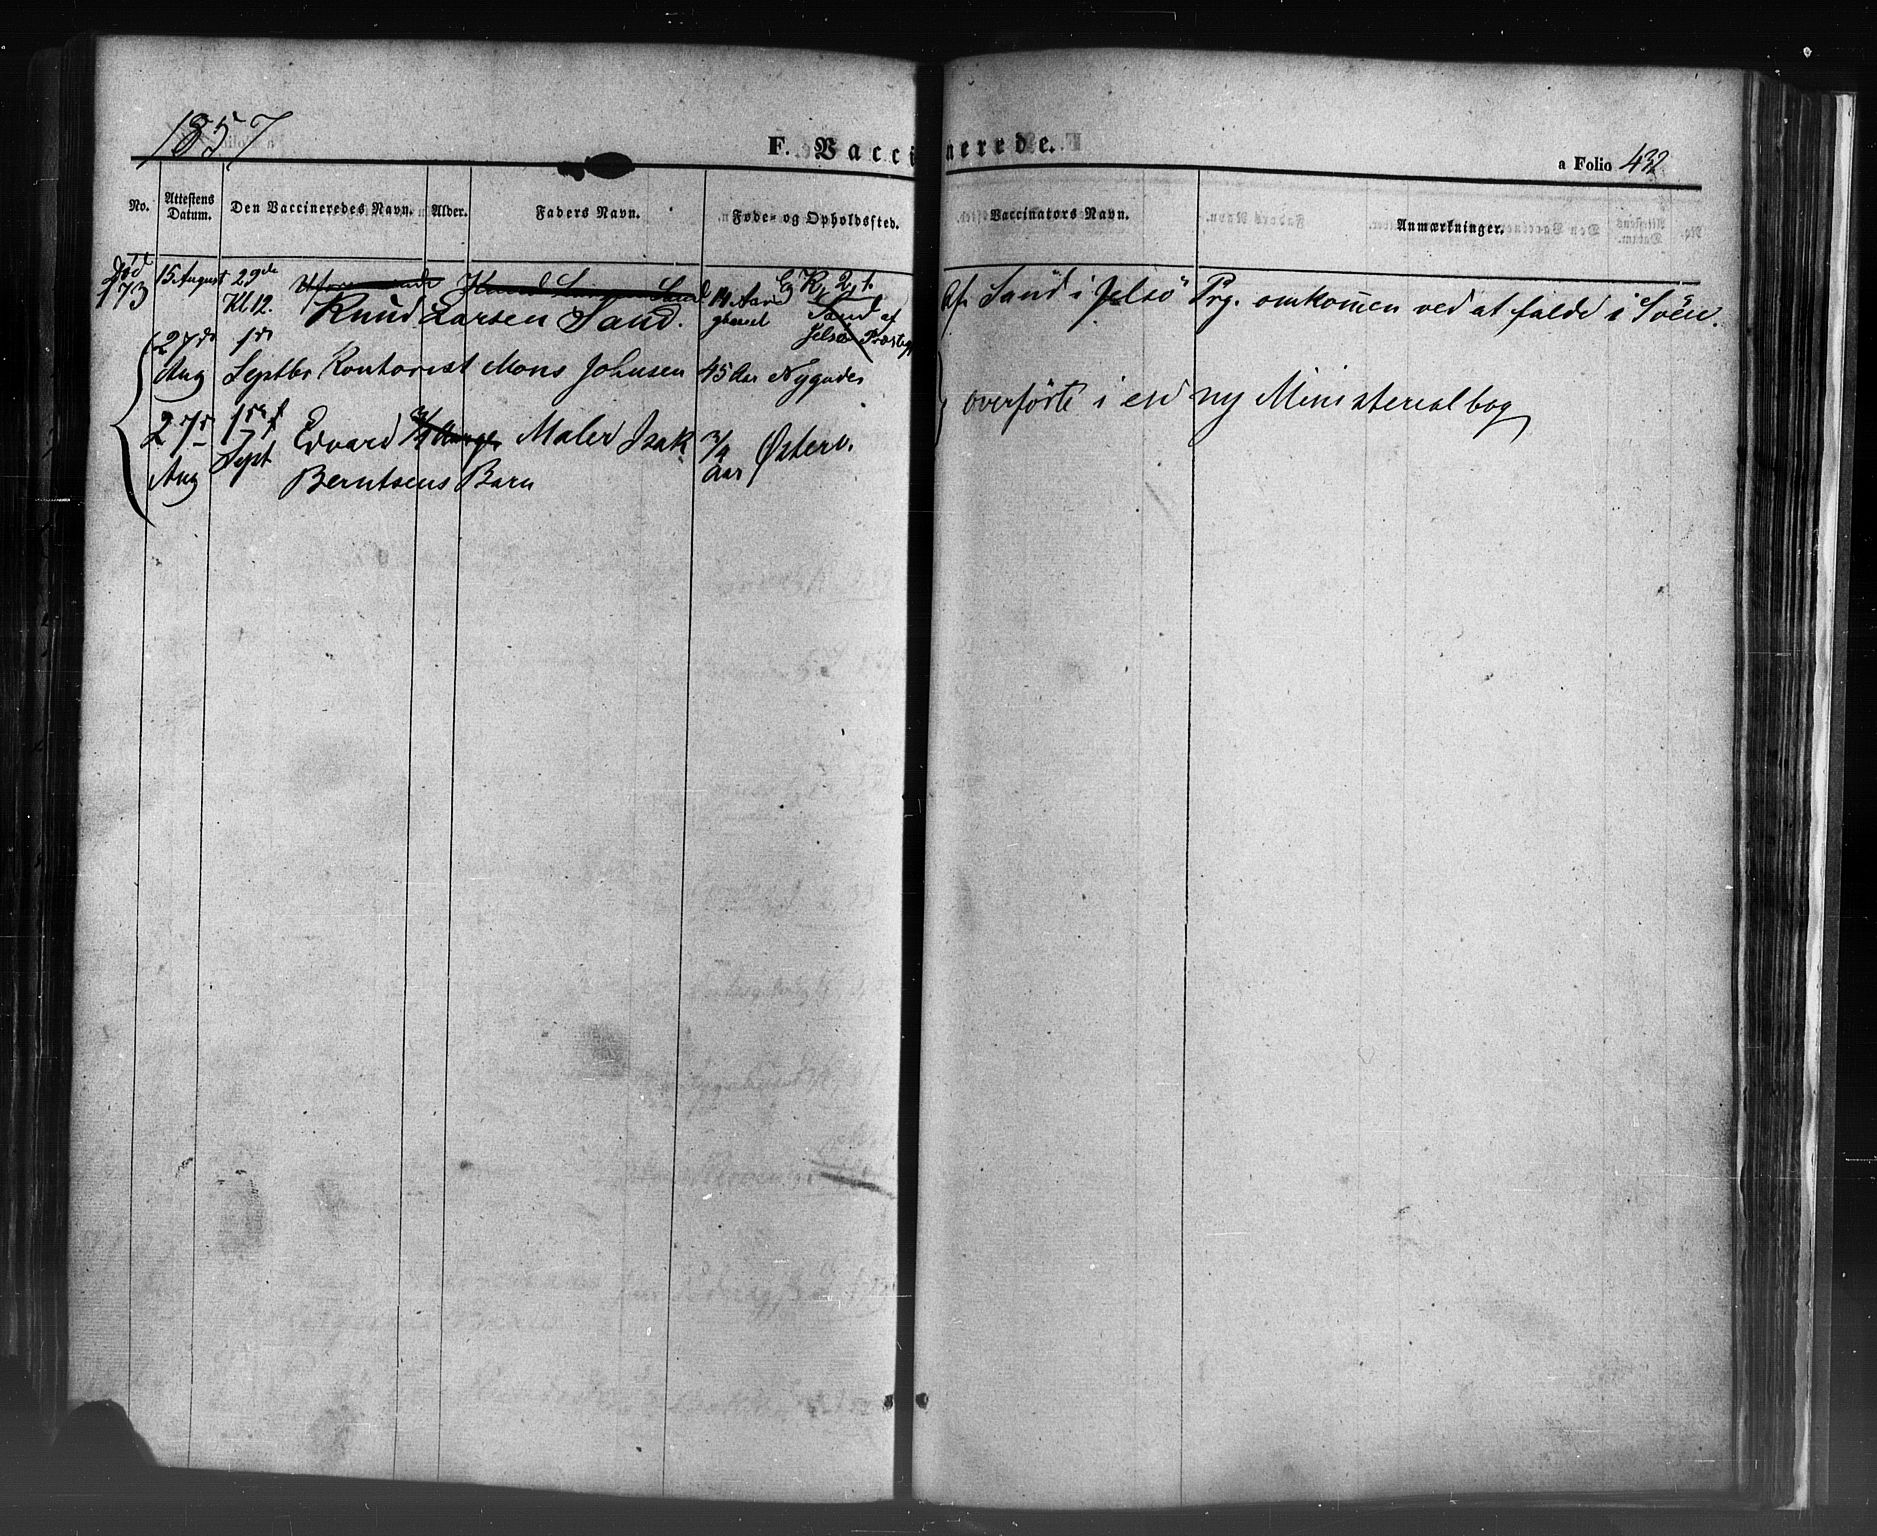 1857
F. Vaccinerede.
a Folio 432
No. Attestens Datum. Den Vaccineredes Navn. Alder. Faders Navn. Føde- og Opholdssted. Vaccinators Navn. Anmærkninger.
173 15 August 29de Kl. 12. Knud Larsen Sand. 14 Aar Sand af Jelsø Præstegj Af Sand i Jelsø Prg. omkommen ved at falde i Søen.
27de Aug 1ste Septbr Kontorist Mons Johnsen 45 Aar Nygades
overførte i en ny Ministerialbog
27 Aug 1ste Sept Edvard Maler Isak 3/4 Aar Østerv.
Berntsens Barn